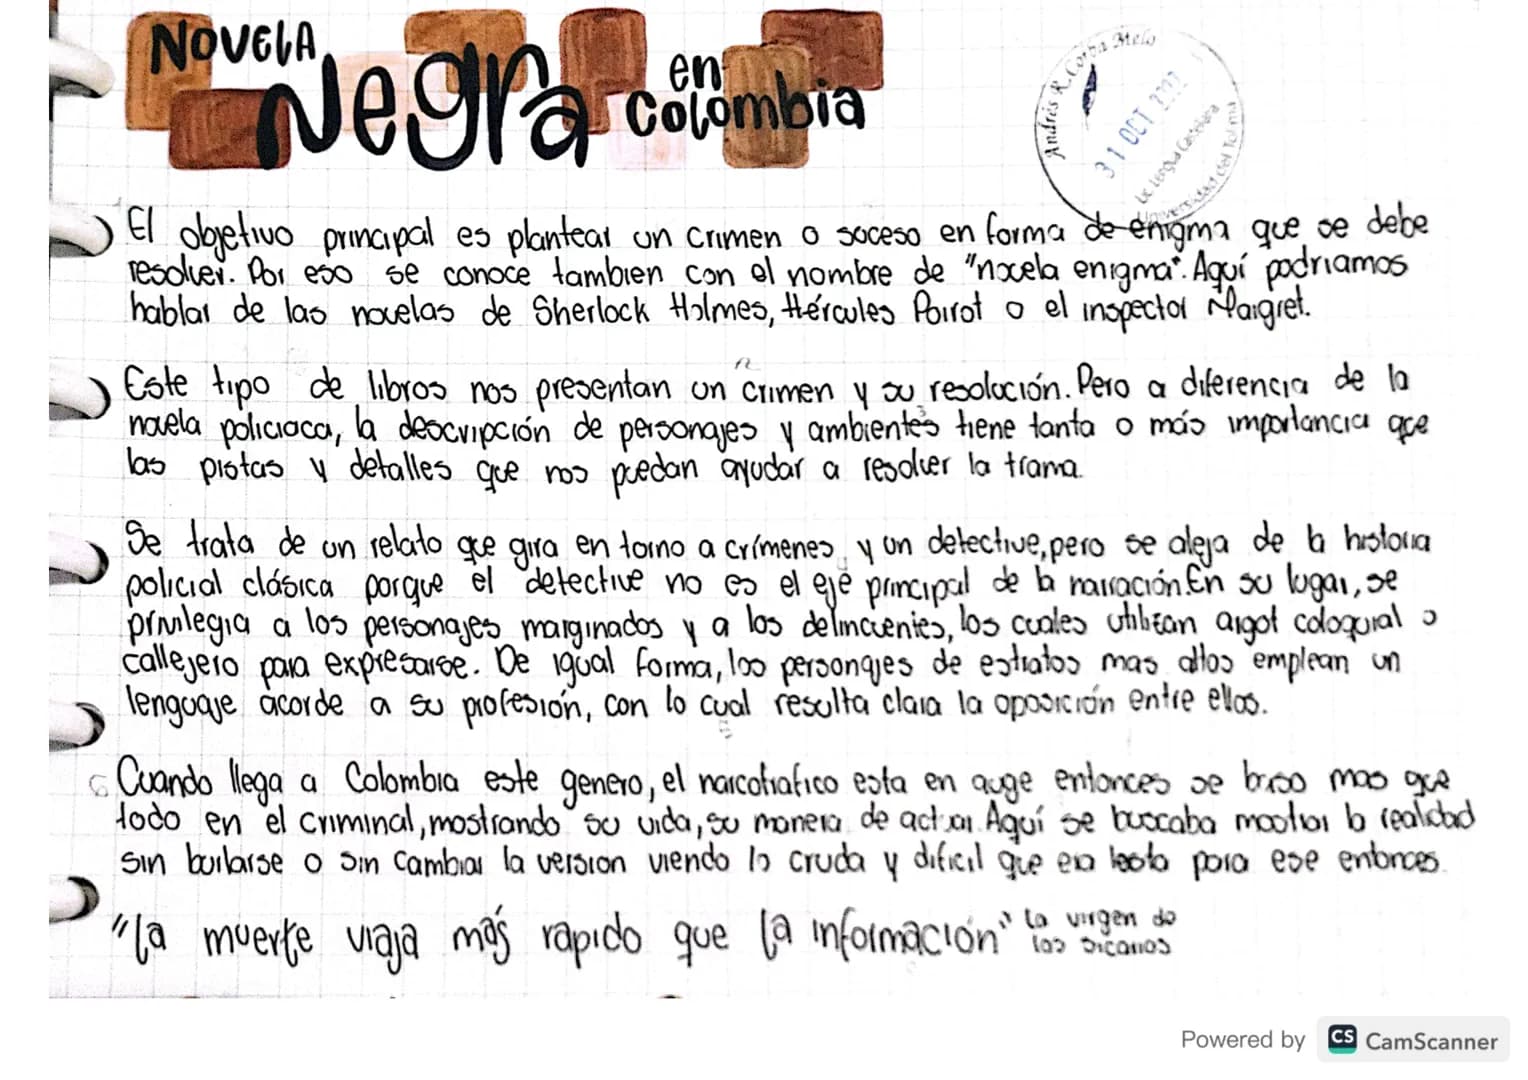 NOVELA
Negra en
Colombia
Andrés R. Corba Melo
31 OCT 2022
Lic Lengua Castellana
Universidad del Tolima
El objetivo principal es plantear un crimen o suceso en forma de enigma que se debe
resolver. Por eso se conoce tambien con el nombre de "novela enigma". Aquí podriamos
hablar de las novelas de Sherlock Holmes, Hércules Poirot o el inspector Maigret.
Este tipo de libros nos presentan un crimen y su resolución. Pero a diferencia de la
novela policiaca, la descripción de personajes y ambientes tiene tanta o más importancia que
las pistas y detalles que nos puedan ayudar a resolver la trama.
Se trata de un relato que gira en torno a crímenes y un detective, pero se aleja de la historia
policial clásica porque el detective no es el eje principal de la narración. En su lugar, se
privilegia a los personajes marginados y a los delincuentes, los cuales utilizan argot coloquial o
callejero para expresarse. De igual forma, los personajes de estratos mas altos emplean un
lenguaje acorde a su profesión, con lo cual resulta clara la oposición entre ellos.
Cuando llega a Colombia este genero, el narcotrafico esta en auge entonces se baso mas que
todo en el criminal, mostrando su vida, su manera de actuar. Aquí se buscaba mostrar la realidad
sin burlarse o sin cambiar la version viendo lo cruda y dificil que era para ese entonces.
"La muerte viaja más rapido que la información" La virgen de
los sicarios
Powered by CS CamScanner